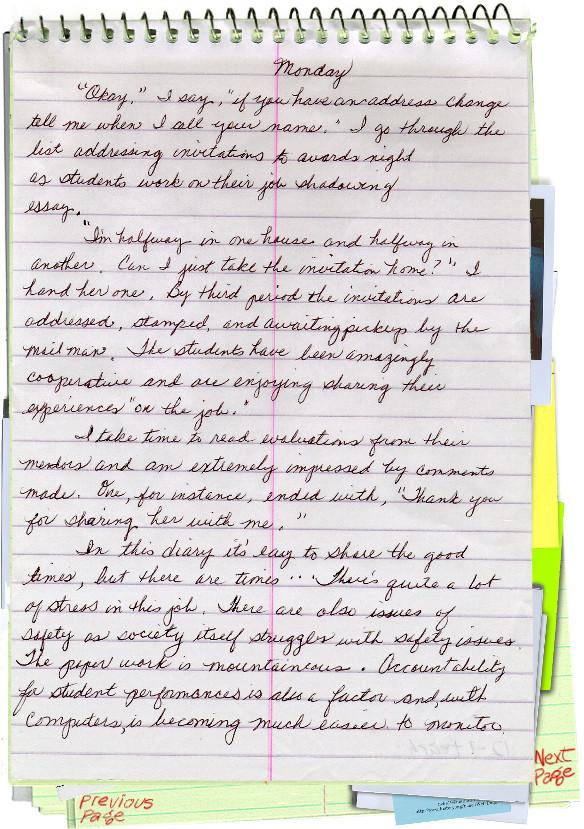 Monday
"Okay." I say, "if you have an address change
tell me when I call your name." I go through the
list addressing invitations to awards night
as students work on their job shadowing
essay.
"I'm halfway in one house and halfway in
another. Can I just take the invitation home?" I
hand her one. By third period the invitations are
addressed, stamped, and awaiting pickup by the
mail man. The students have been amazingly
cooperative and are enjoying sharing their
experiences "on the job."
I take time to read evaluations from their
mentors and am extremely impressed by comments
made. One, for instance, ended with, "Thank you
for sharing her with me."
In this diary it's easy to share the good
times, but there are times... There's quite a lot
of stress in this job. There are also issues of
safety as society itself struggles with safety issues.
The paper work is mountaineous. Accountability
for student performances is also a factor and, with
computers, is becoming much easier to monitor.
Previous
Page
Next
Page